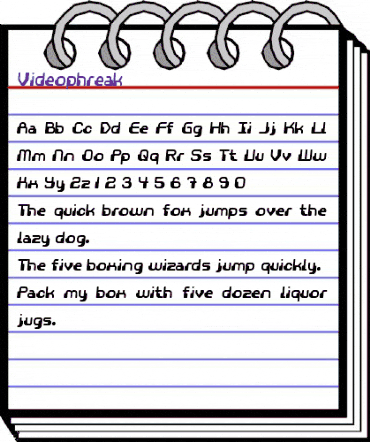 Videophreak
Aa Bb Cc Dd Ee Ff Gg Hh Ii Jj Kk Ll
Mm Nn Oo Pp Qq Rr Ss Tt Uu Vv Ww
Xx Yy Zz 1 2 3 4 5 6 7 8 9 0
The quick brown fox jumps over the
lazy dog.
The five boxing wizards jump quickly.
Pack my box with five dozen liquor
jugs.